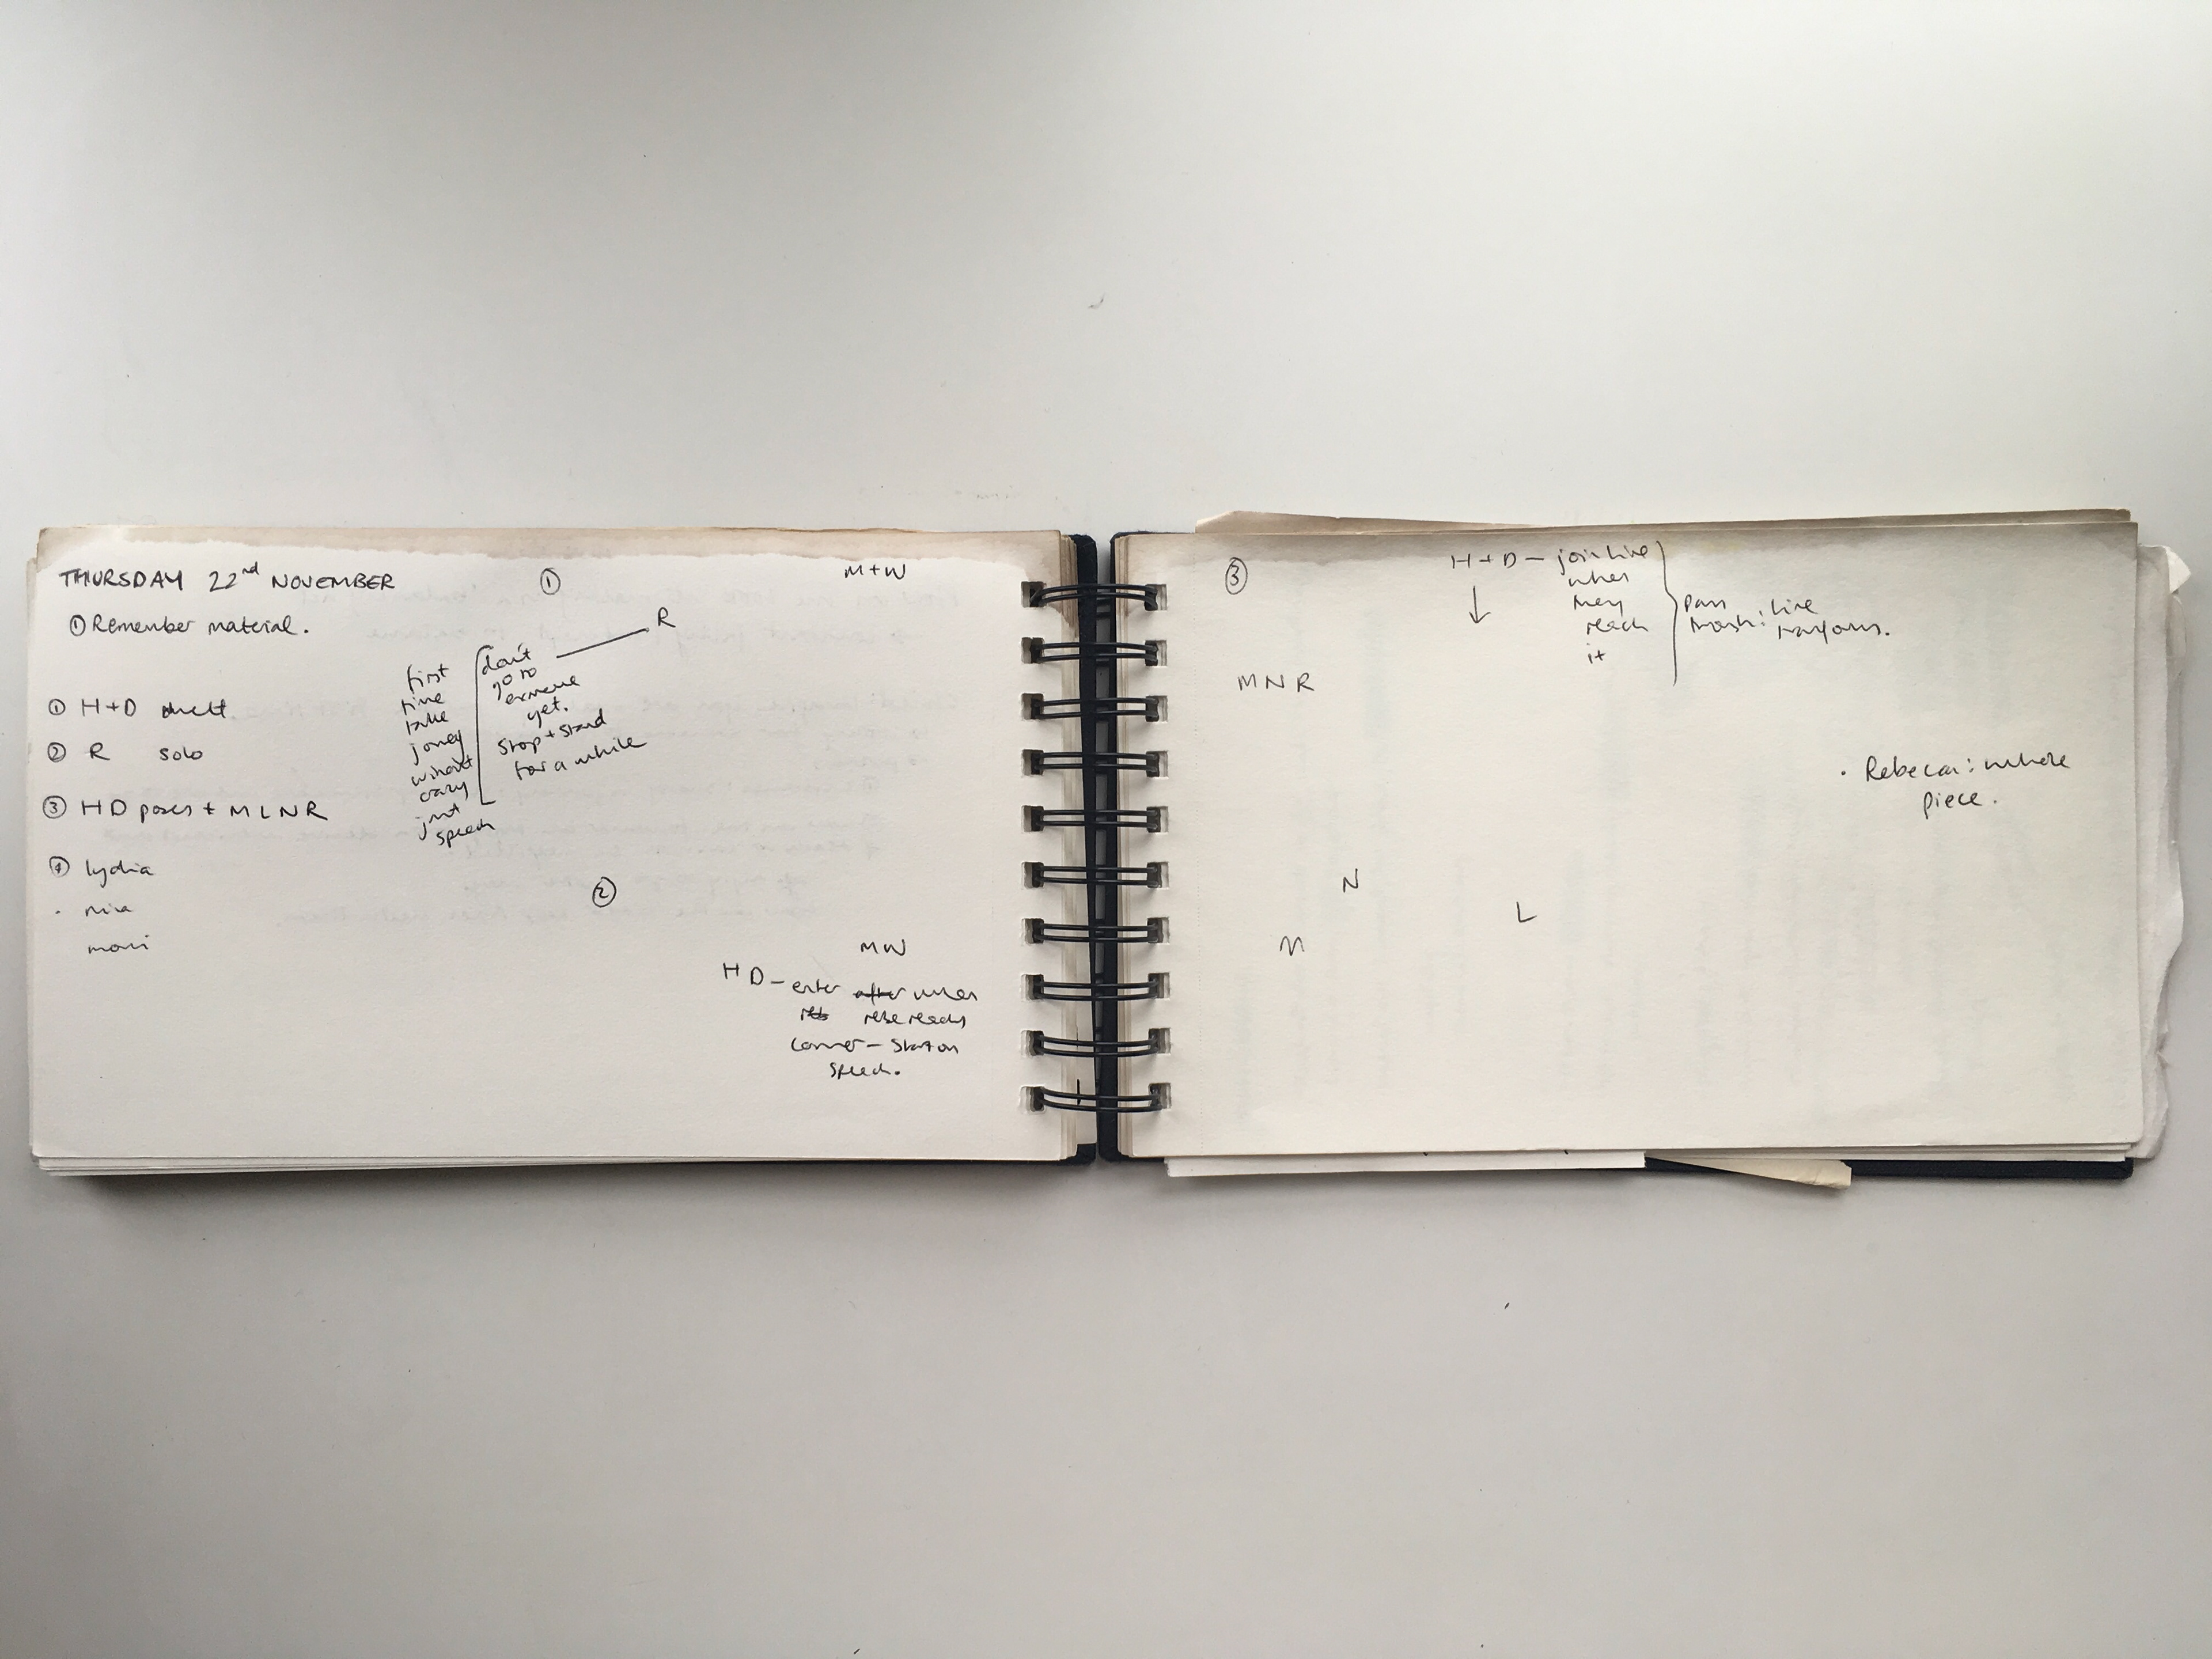 THURSDAY 22nd NOVEMBER
① Remember material.
① H+D duett
② R solo
③ HD poses + MLNR
④ lydia
· nia
mari
①
M+W
R
first
time
take
joney
without
crazy
just
speech
don't
go to
extreme
yet.
Stop + stand
for a while
②
MW
HD – enter after when
reb rebe reachs
corner – start on
speech.
③
H+D – join line
when
they
reach
it
pam
: line
tranforms.
MNR
· Rebecca: whole
piece.
N
L
M